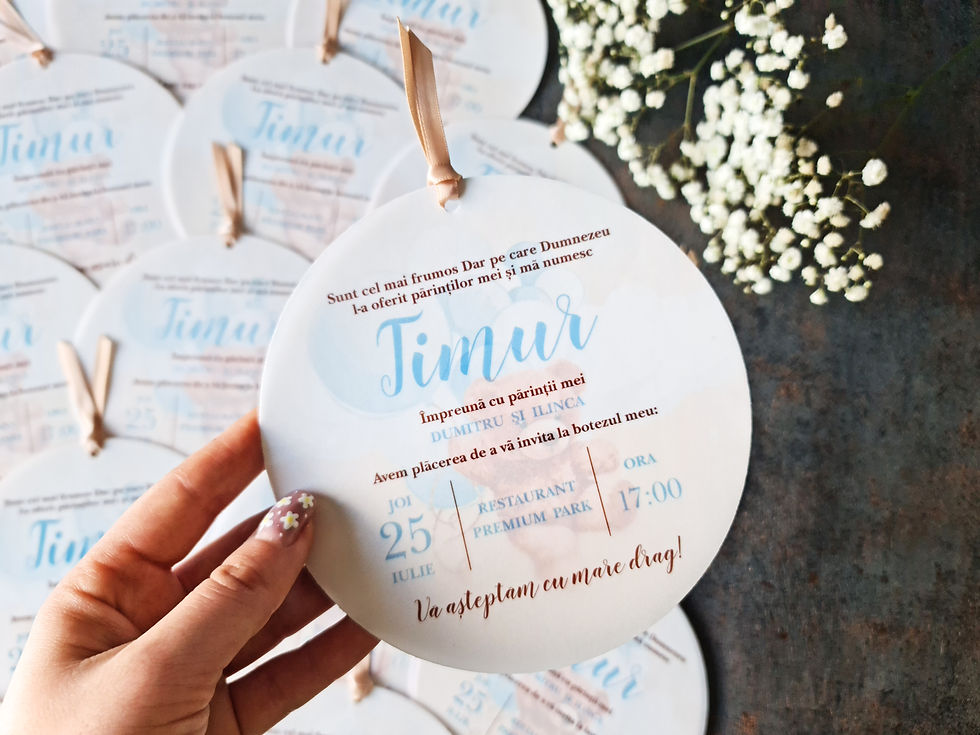 Sunt cel mai frumos Dar pe care Dumnezeu
l-a oferit părinților mei și mă numesc
Timur
Împreună cu părinții mei
DUMITRU ȘI ILINCA
Avem plăcerea de a vă invita la botezul meu:
JOI
25
IULIE
RESTAURANT
PREMIUM PARK
ORA
17:00
Va așteptam cu mare drag!